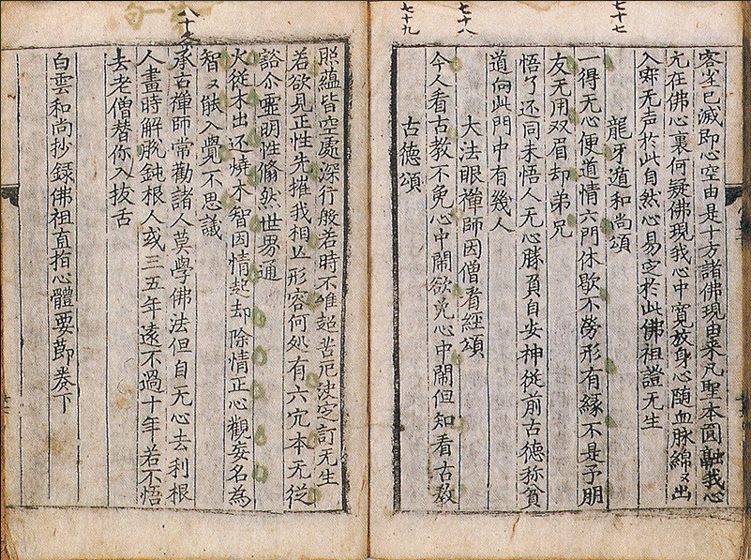 七十七
七十八
七十九
客尘已滅即心空由是十方諸佛現由来凡聖本圓融我心
元在佛心裏何疑佛現我心中寛放身心随血脉綿〻出
入寂无声於此自然心易定於此佛祖證无生
龍牙遁和尚頌
一得无心便道情六門休歇不勞形有縁不是予朋
友无用双眉却弟兄
悟了还同未悟人无心勝負自安神從前古德称貧
道向此門中有幾人
大法眼禪師因僧看經頌
今人看古教不免心中閙欲免心中閙但知看古教
古德頌
八十
照蘊皆空處深行般若時不唯超苦厄決定訂无生
若欲見正性先摧我相丘形容何処有六穴本无從
豁尒靈明性翛然世界通
火從木出还燒木智因情起却除情正心觀妄名為
智〻能入覺不思議
承古禪師常勸諸人莫學佛法但自无心去利根
人晝時解脱鈍根人或三五年遠不過十年若不悟
去老僧替你入拔舌
白雲和尚抄録佛祖直指心體要節卷下